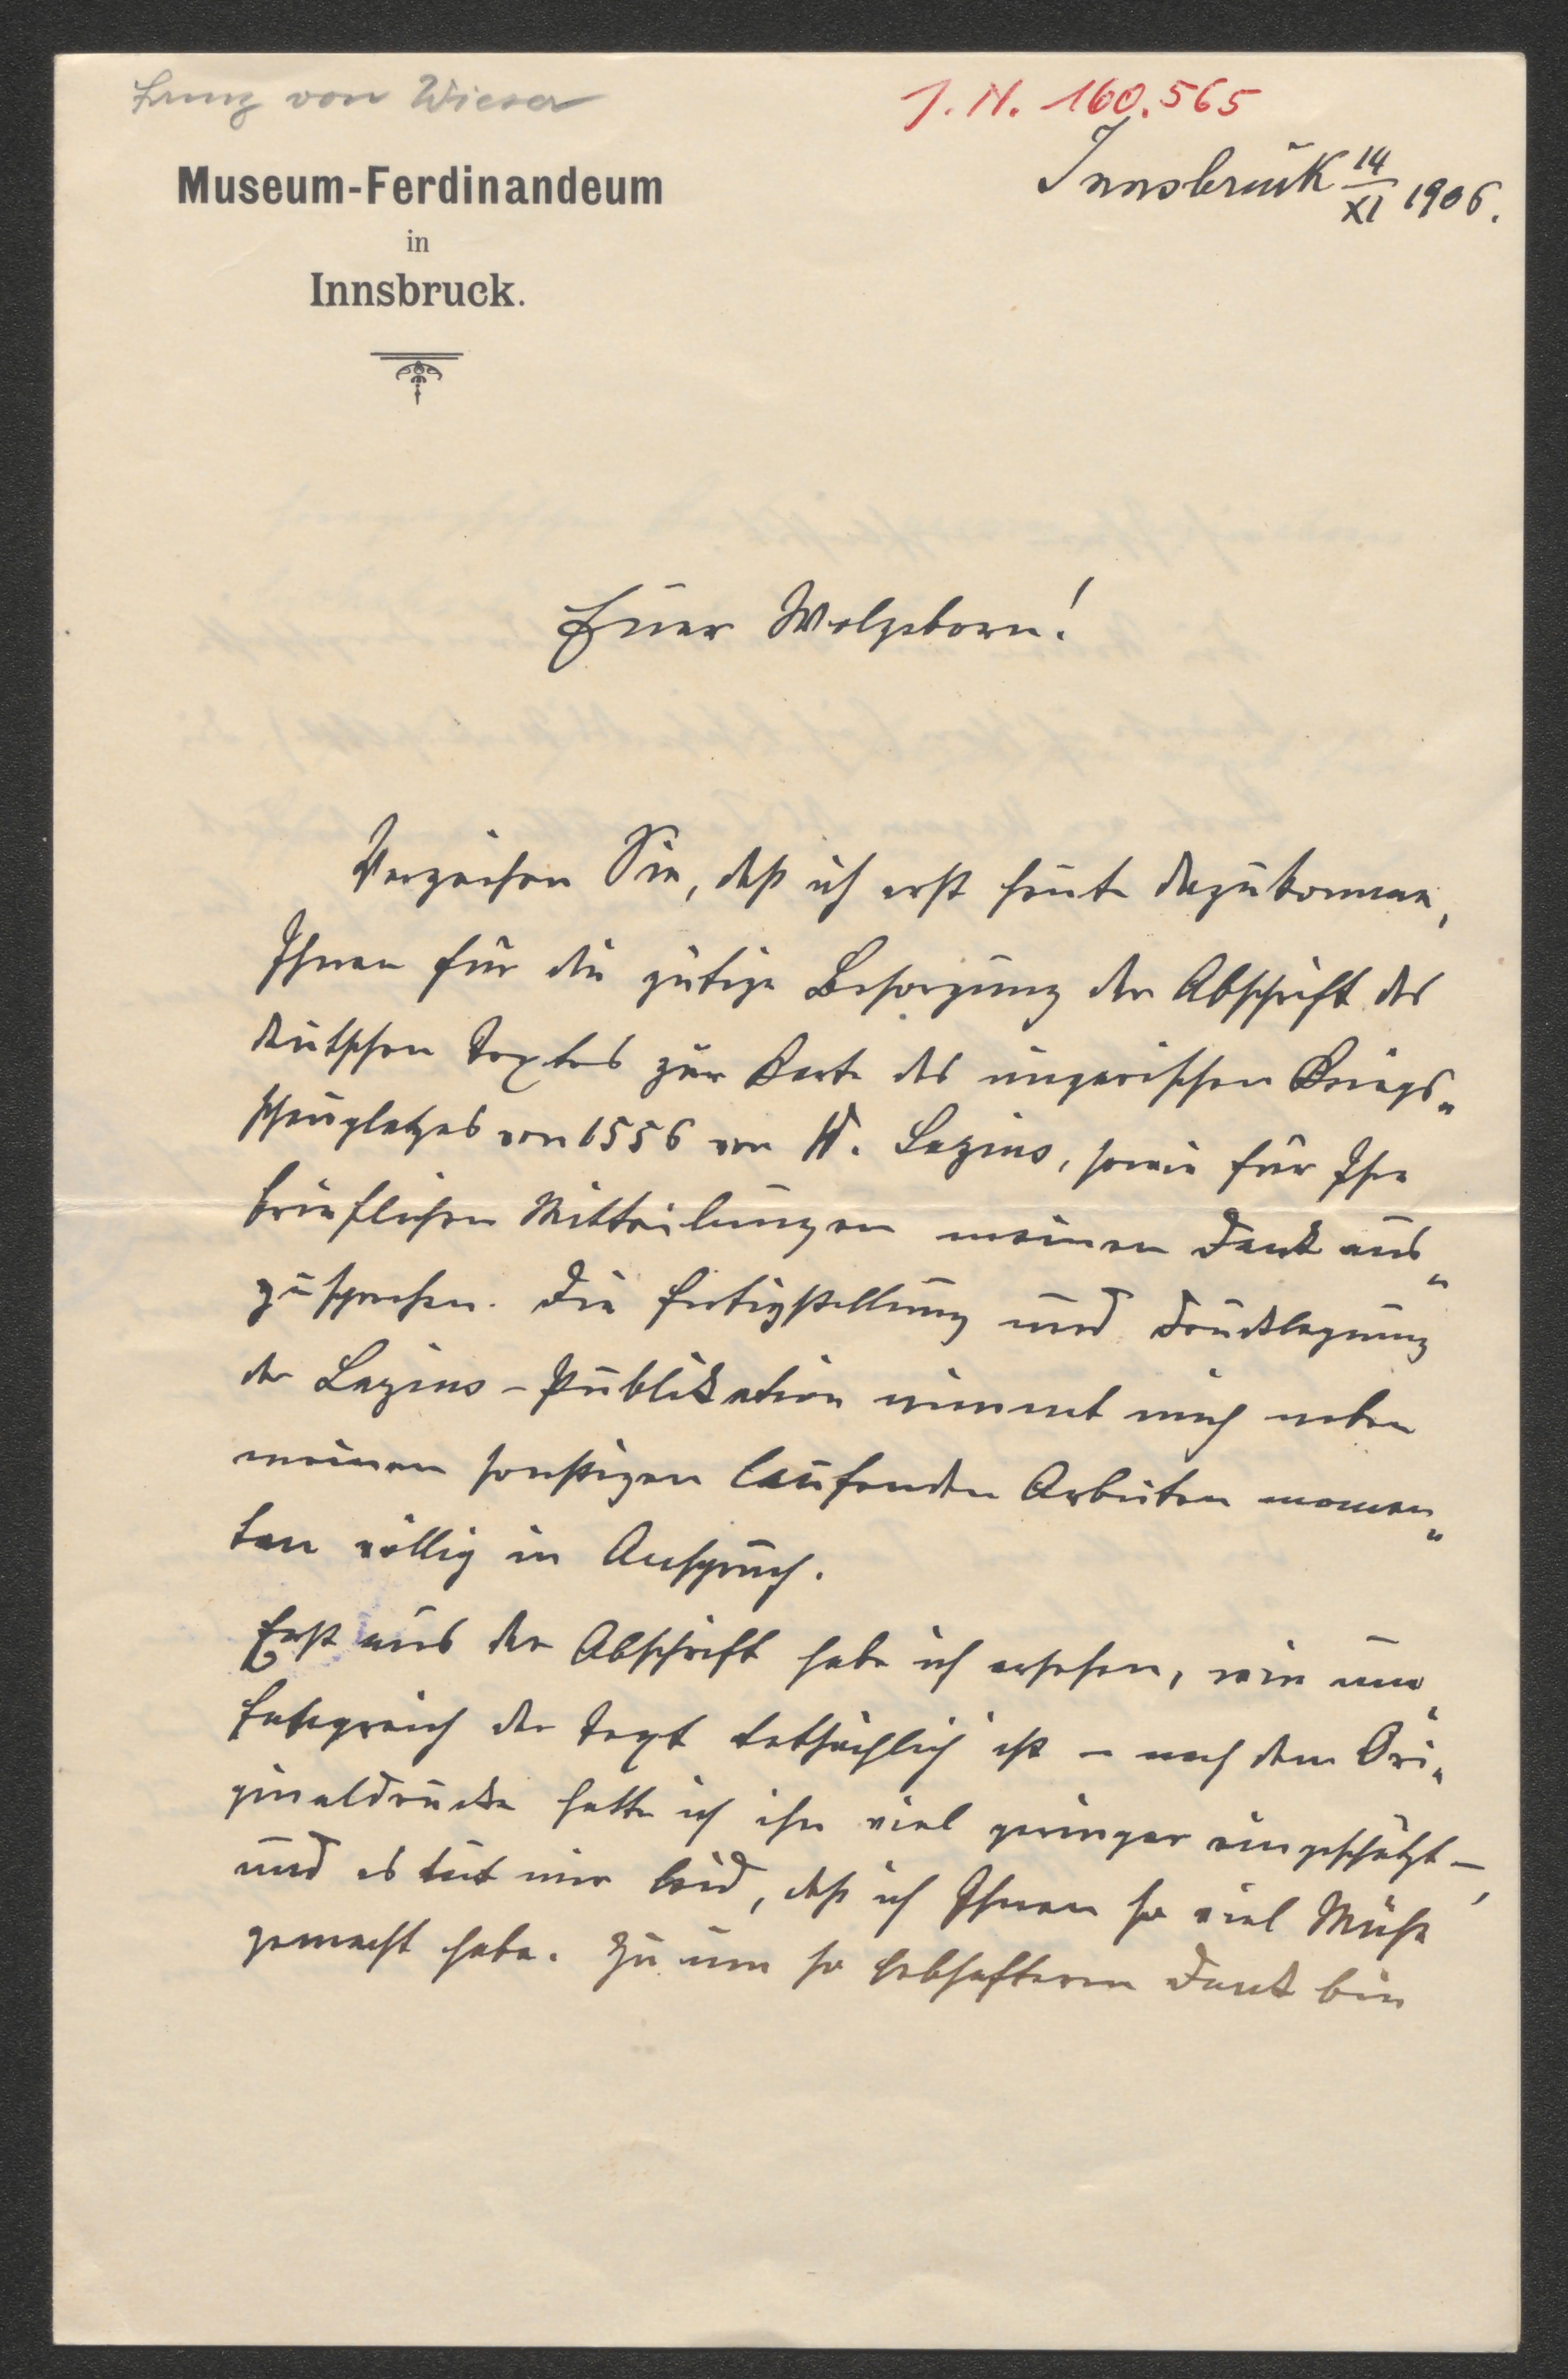 Franz von Wieser
J. N. 160.565
Museum-Ferdinandeum
in
Innsbruck.
Innsbruck 14/XI 1906.
Euer Wolgeborn!
Verzeihen Sie, daß ich erst heute dazukomme,
Ihnen für die gütige Besorgung der Abschrift des
deutschen Textes zur Karte des ungarischen Kriegs„
schauplatzes von 1556 von W. Lazius, sowie für Ihre
brieflichen Mitteilungen meinen Dank aus„
zusprechen. Die Fertigstellung und Drucklegung
der Lazius-Publikation nimmt mich neben
meinen sonstigen laufenden Arbeiten momen„
tan völlig in Anspruch.
Erst aus der Abschrift habe ich ersehen, wie um„
fangreich der Text tatsächlich ist – nach dem Ori„
ginaldrucke hatte ich ihn viel geringer eingeschätzt –,
und es tut mir leid, daß ich Ihnen so viel Mühe
gemacht habe. Zu um so lebhafterem Dank bin